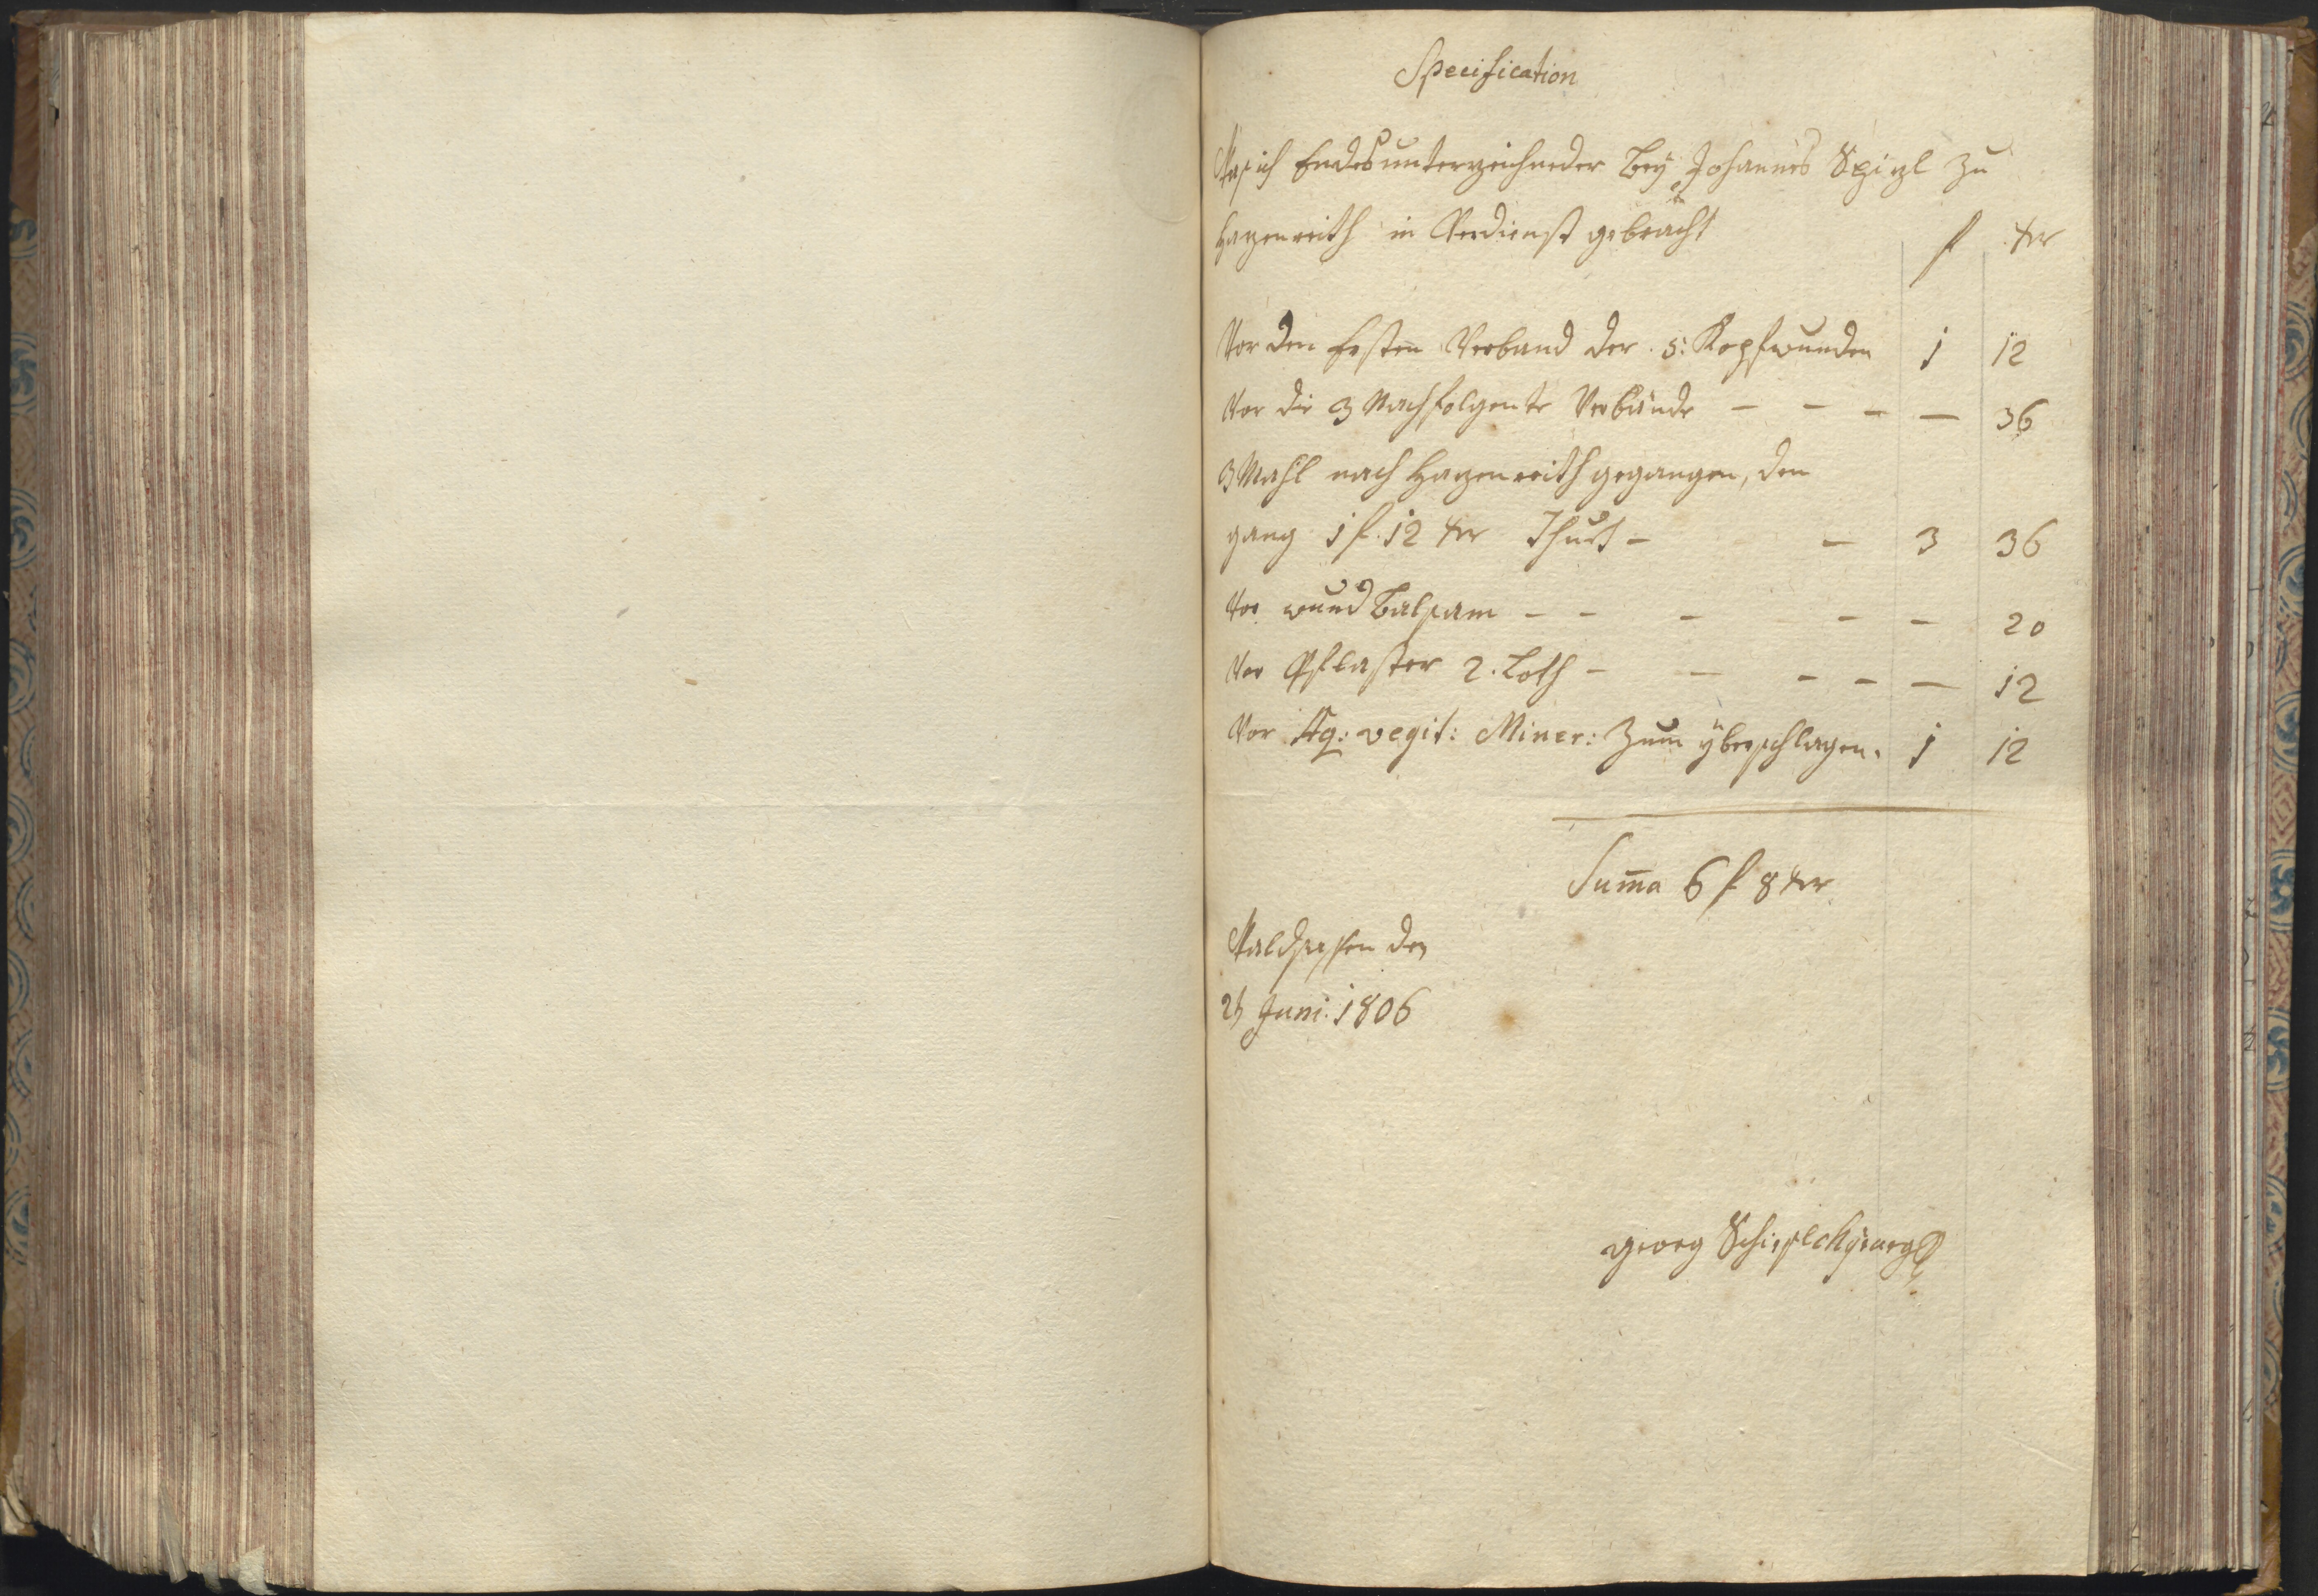 Specification
Was ich Endesunterzeichneder bey Johannes Spizl zu
Hazenreith in Verdienst gebracht
f xer
Vor den Ersten Verband der 5: Kopfwunden 1 12
Vor die 3 Nachfolgente Verbände - - - - 36
3 Mahl nach Hazenreith gegangen, den
gang 1 f. 12 xer Thut - - 3 36
Vor wund Balsam - - - - - 20
Vor Pflaster 2. Loth - - - - - 12
Vor Aq: vegit: Miner: Zum yberschlagen. 1 12
Suma 6 f 8 xer
Waldsassen den
Juni. 1806
georg